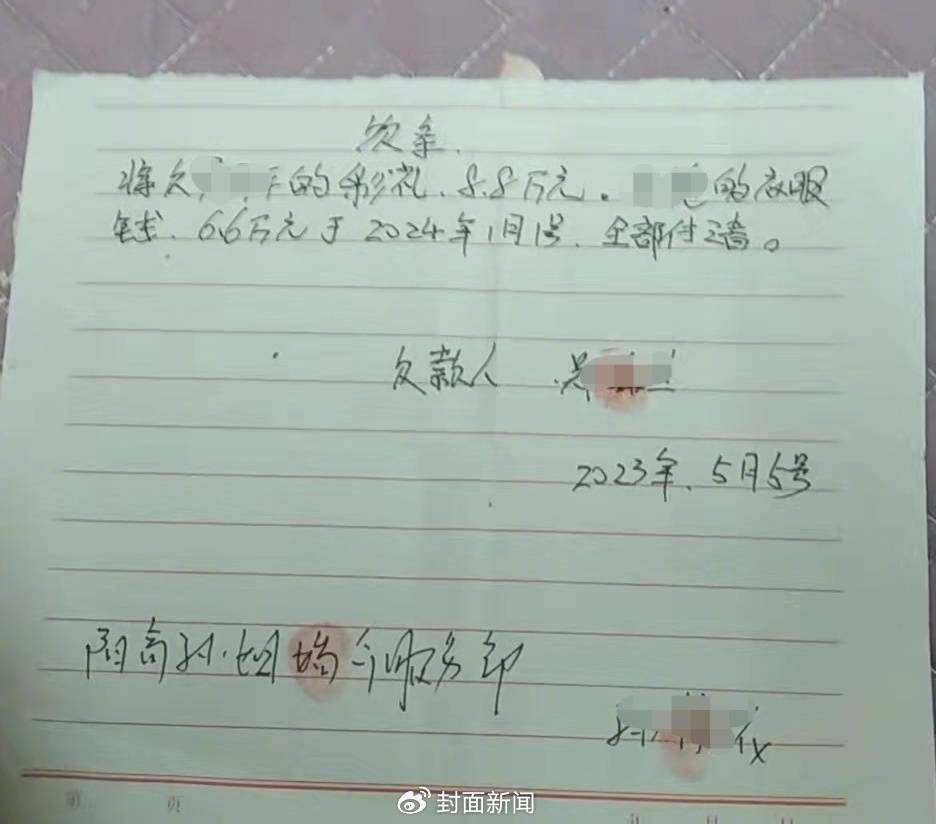 欠条.
将欠 的彩礼.8.8万元。 的衣服
钱.6.6万元于2024年1月1号.全部付清。
欠款人 吴
2023年.5月5号
阳高孙姐婚介服务部
孙
第 页
封面新闻